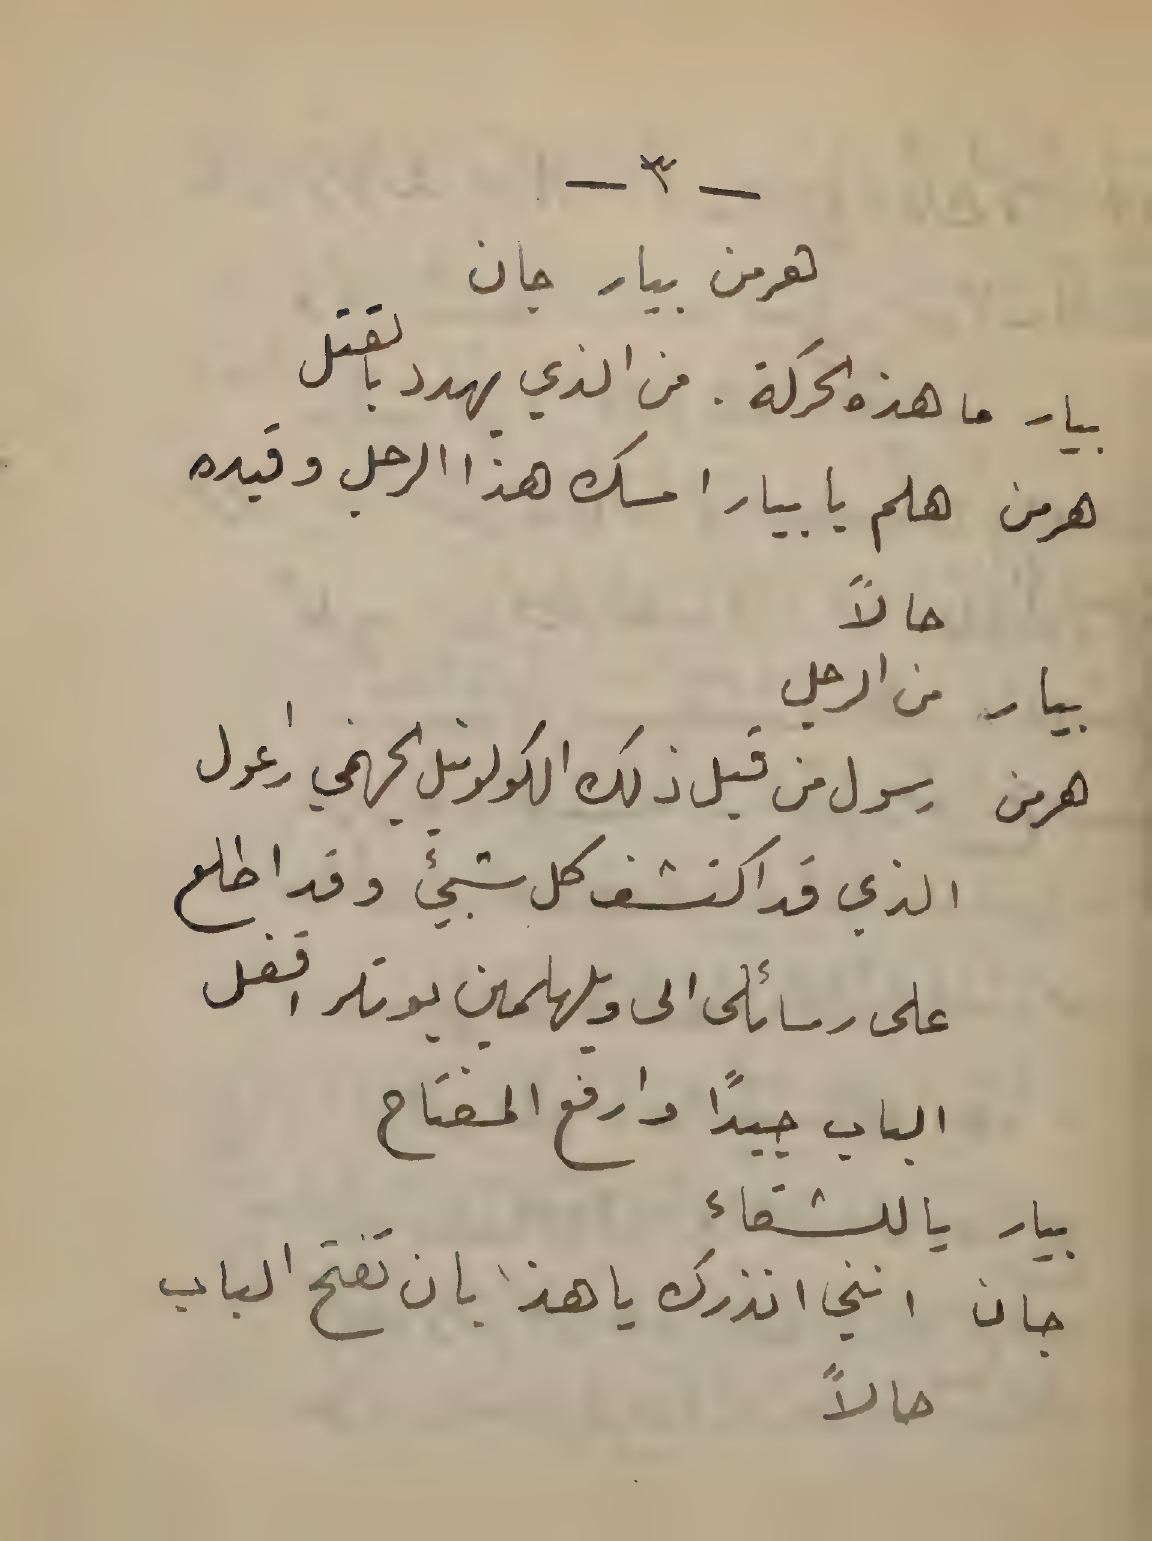 — ٣ —
هرمن بيار جان
بيار ما هذه الحركة . من الذي يهدد بالقتل
هرمن هلم يا بيار امسك هذا الرجل وقيده
حالاً
بيار من الرجل
هرمن رسول من قبل ذلك الكولونيل الجهنمي ارعول
الذي قد اكتشف كل شيئ وقد اطلع
على رسائلى الى ويلهلمين يوتلر اقفل
الباب جيدًا وارفع المفتاح
بيار يا للشقاء
جان انني انذرك يا هذا بان تفتح الباب
حالاً